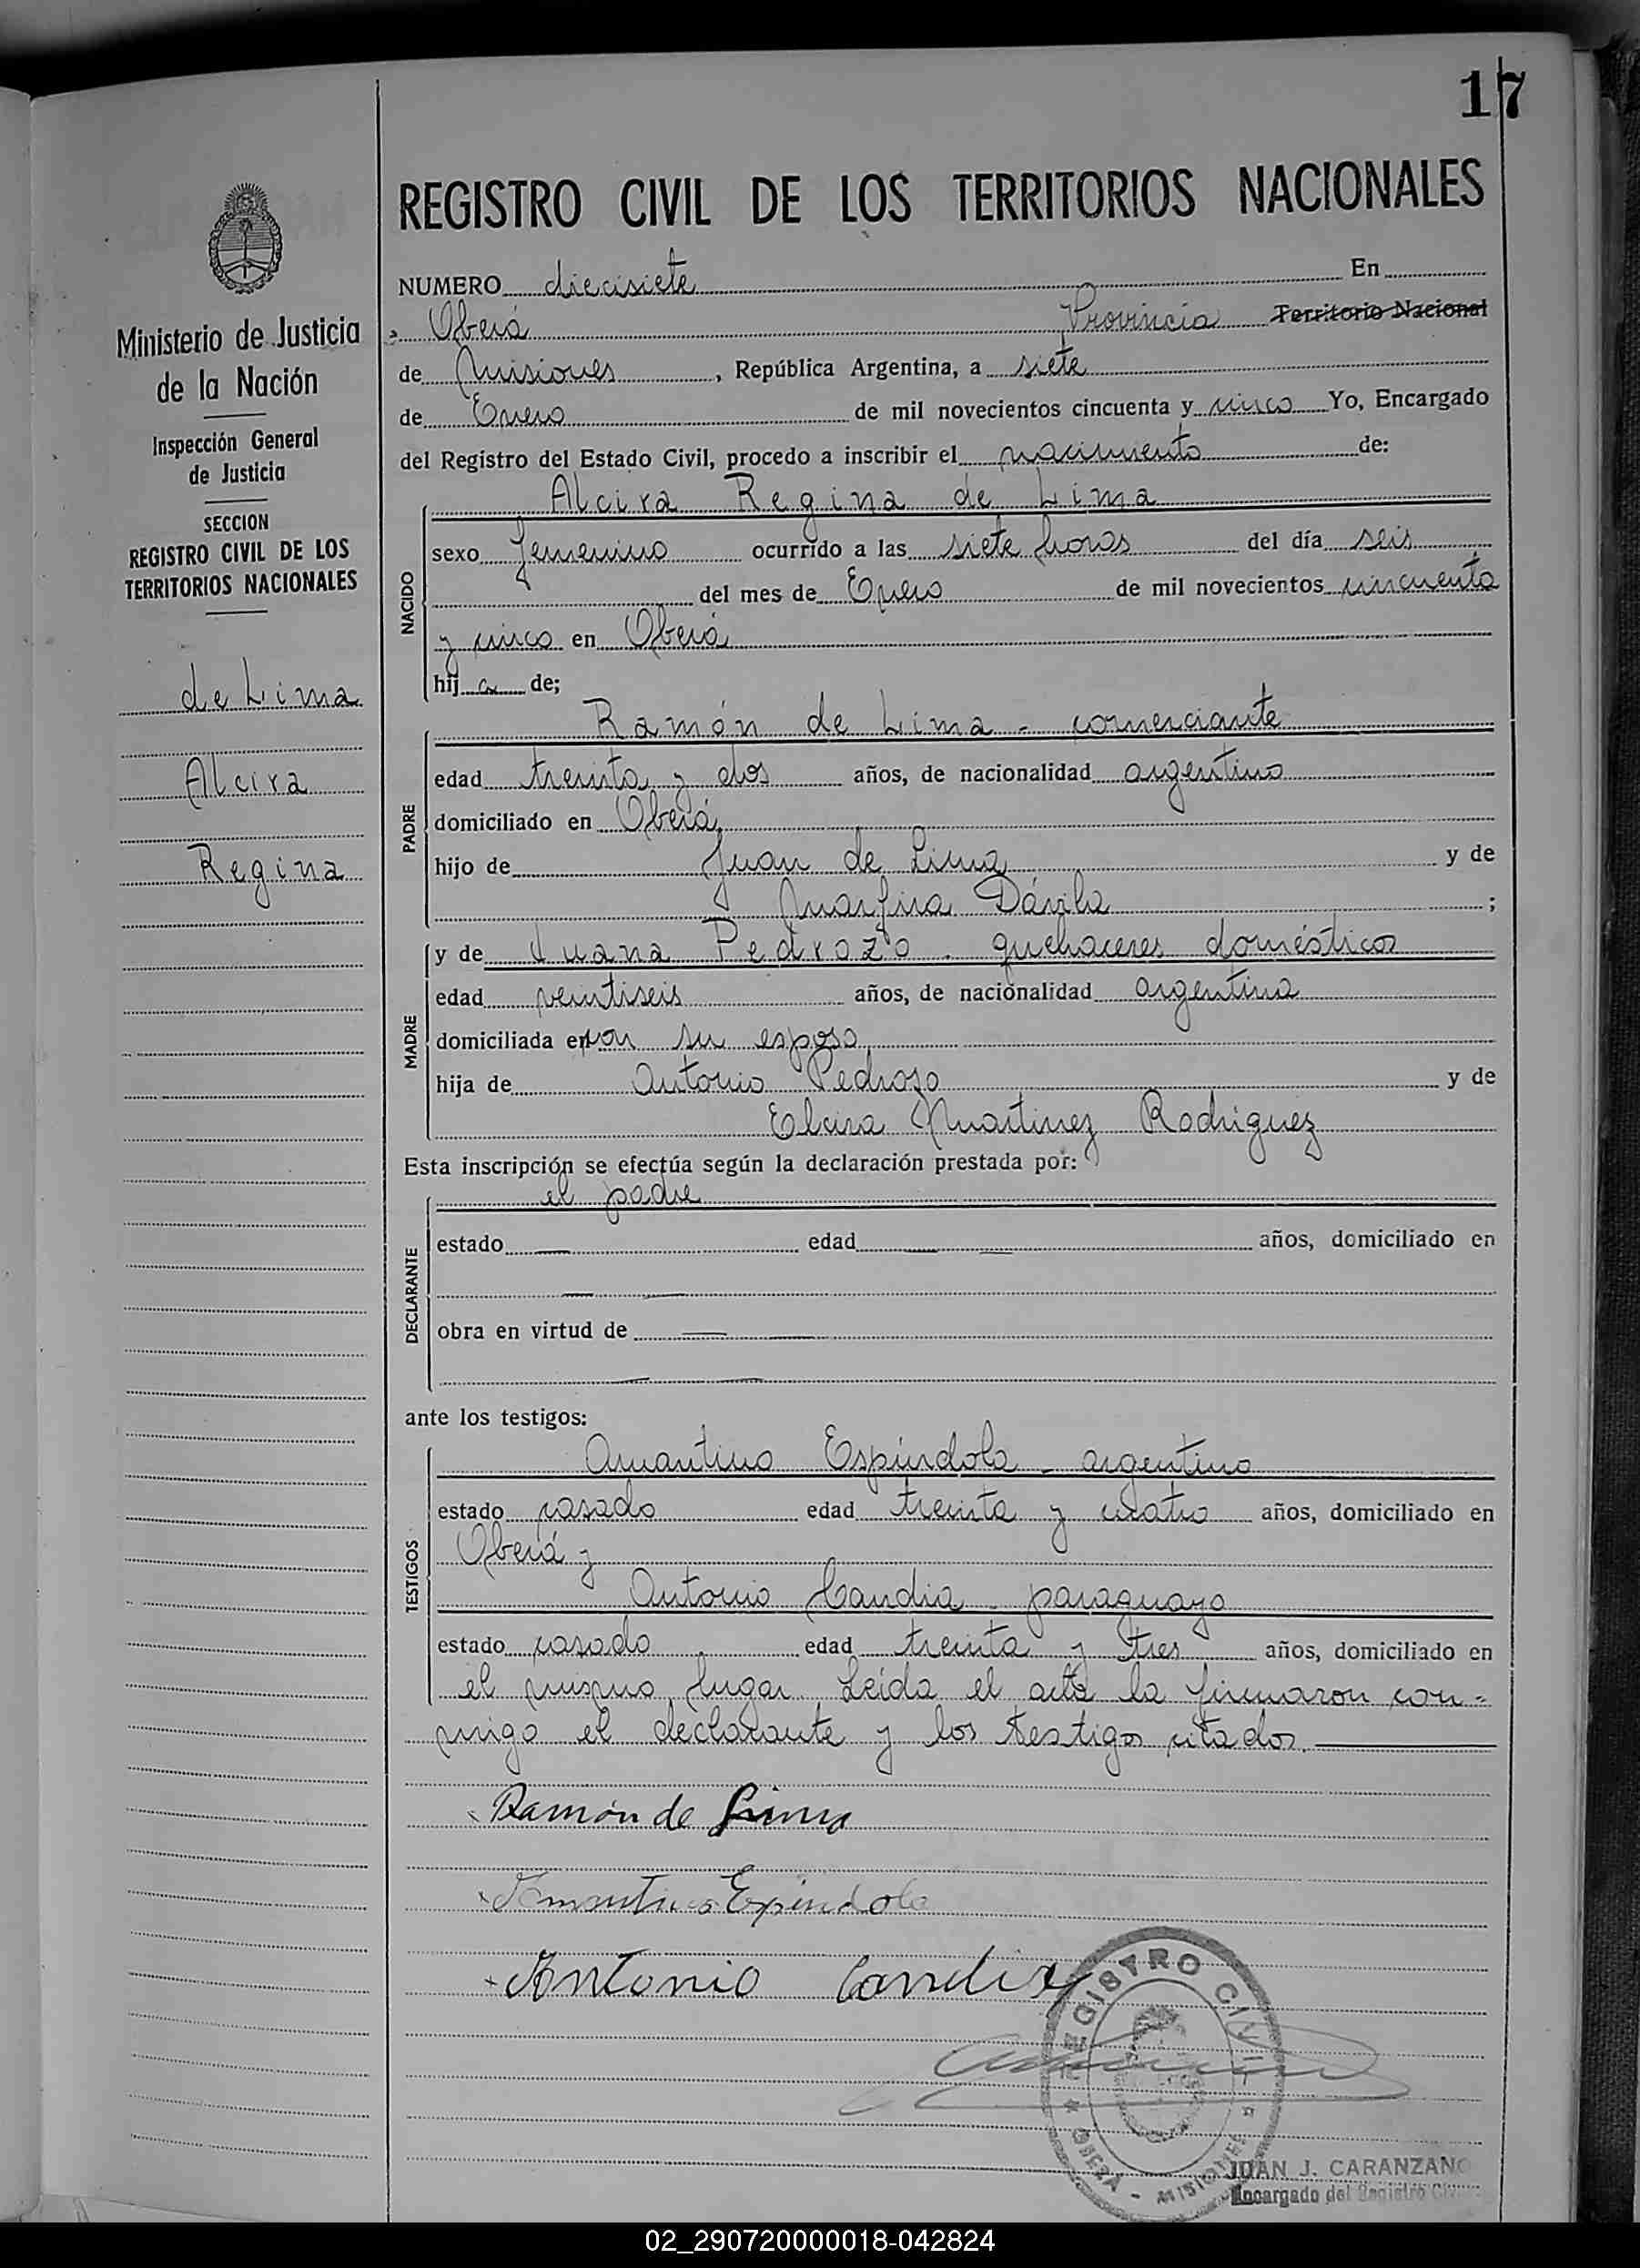 17
REGISTRO CIVIL DE LOS TERRITORIOS NACIONALES
Ministerio de Justicia
de la Nación
Inspección General
de Justicia
SECCION
REGISTRO CIVIL DE LOS
TERRITORIOS NACIONALES
de Lima
Alcira
Regina
NUMERO diecisiete En
Oberá Provincia Territorio Nacional
de Misiones, República Argentina, a siete
de Enero de mil novecientos cincuenta y cinco Yo, Encargado
del Registro del Estado Civil, procedo a inscribir el nacimiento de:
NACIDO
Alcira Regina de Lima
sexo femenino ocurrido a las siete horas del día seis
del mes de Enero de mil novecientos cincuenta
y cinco en Oberá
hij a de;
PADRE
Ramón de Lima - comerciante
edad treinta y dos años, de nacionalidad argentino
domiciliado en Oberá,
hijo de Juan de Lima y de
Marfira Dávila ;
MADRE
y de Juana Pedrozo - quehaceres domésticos
edad veintiseis años, de nacionalidad argentina
domiciliada en con su esposo,
hija de Antonio Pedroso y de
Elvira Martinez Rodriguez
Esta inscripción se efectúa según la declaración prestada por:
DECLARANTE
el padre
estado edad años, domiciliado en
obra en virtud de
ante los testigos:
TESTIGOS
Amantino Espíndola - argentino
estado casado edad treinta y cuatro años, domiciliado en
Oberá y
Antonio Candia - paraguayo
estado casado edad treinta y tres años, domiciliado en
el mismo lugar. Leida el acta la firmaron con-
migo el declarante y los testigos citados.
Ramón de Lima
Amantino Espindola
Antonio Candia
REGISTRO CIVIL
OBERA - MISIONES
JUAN J. CARANZANO
Encargado del Registro Civil
02_290720000018-042824